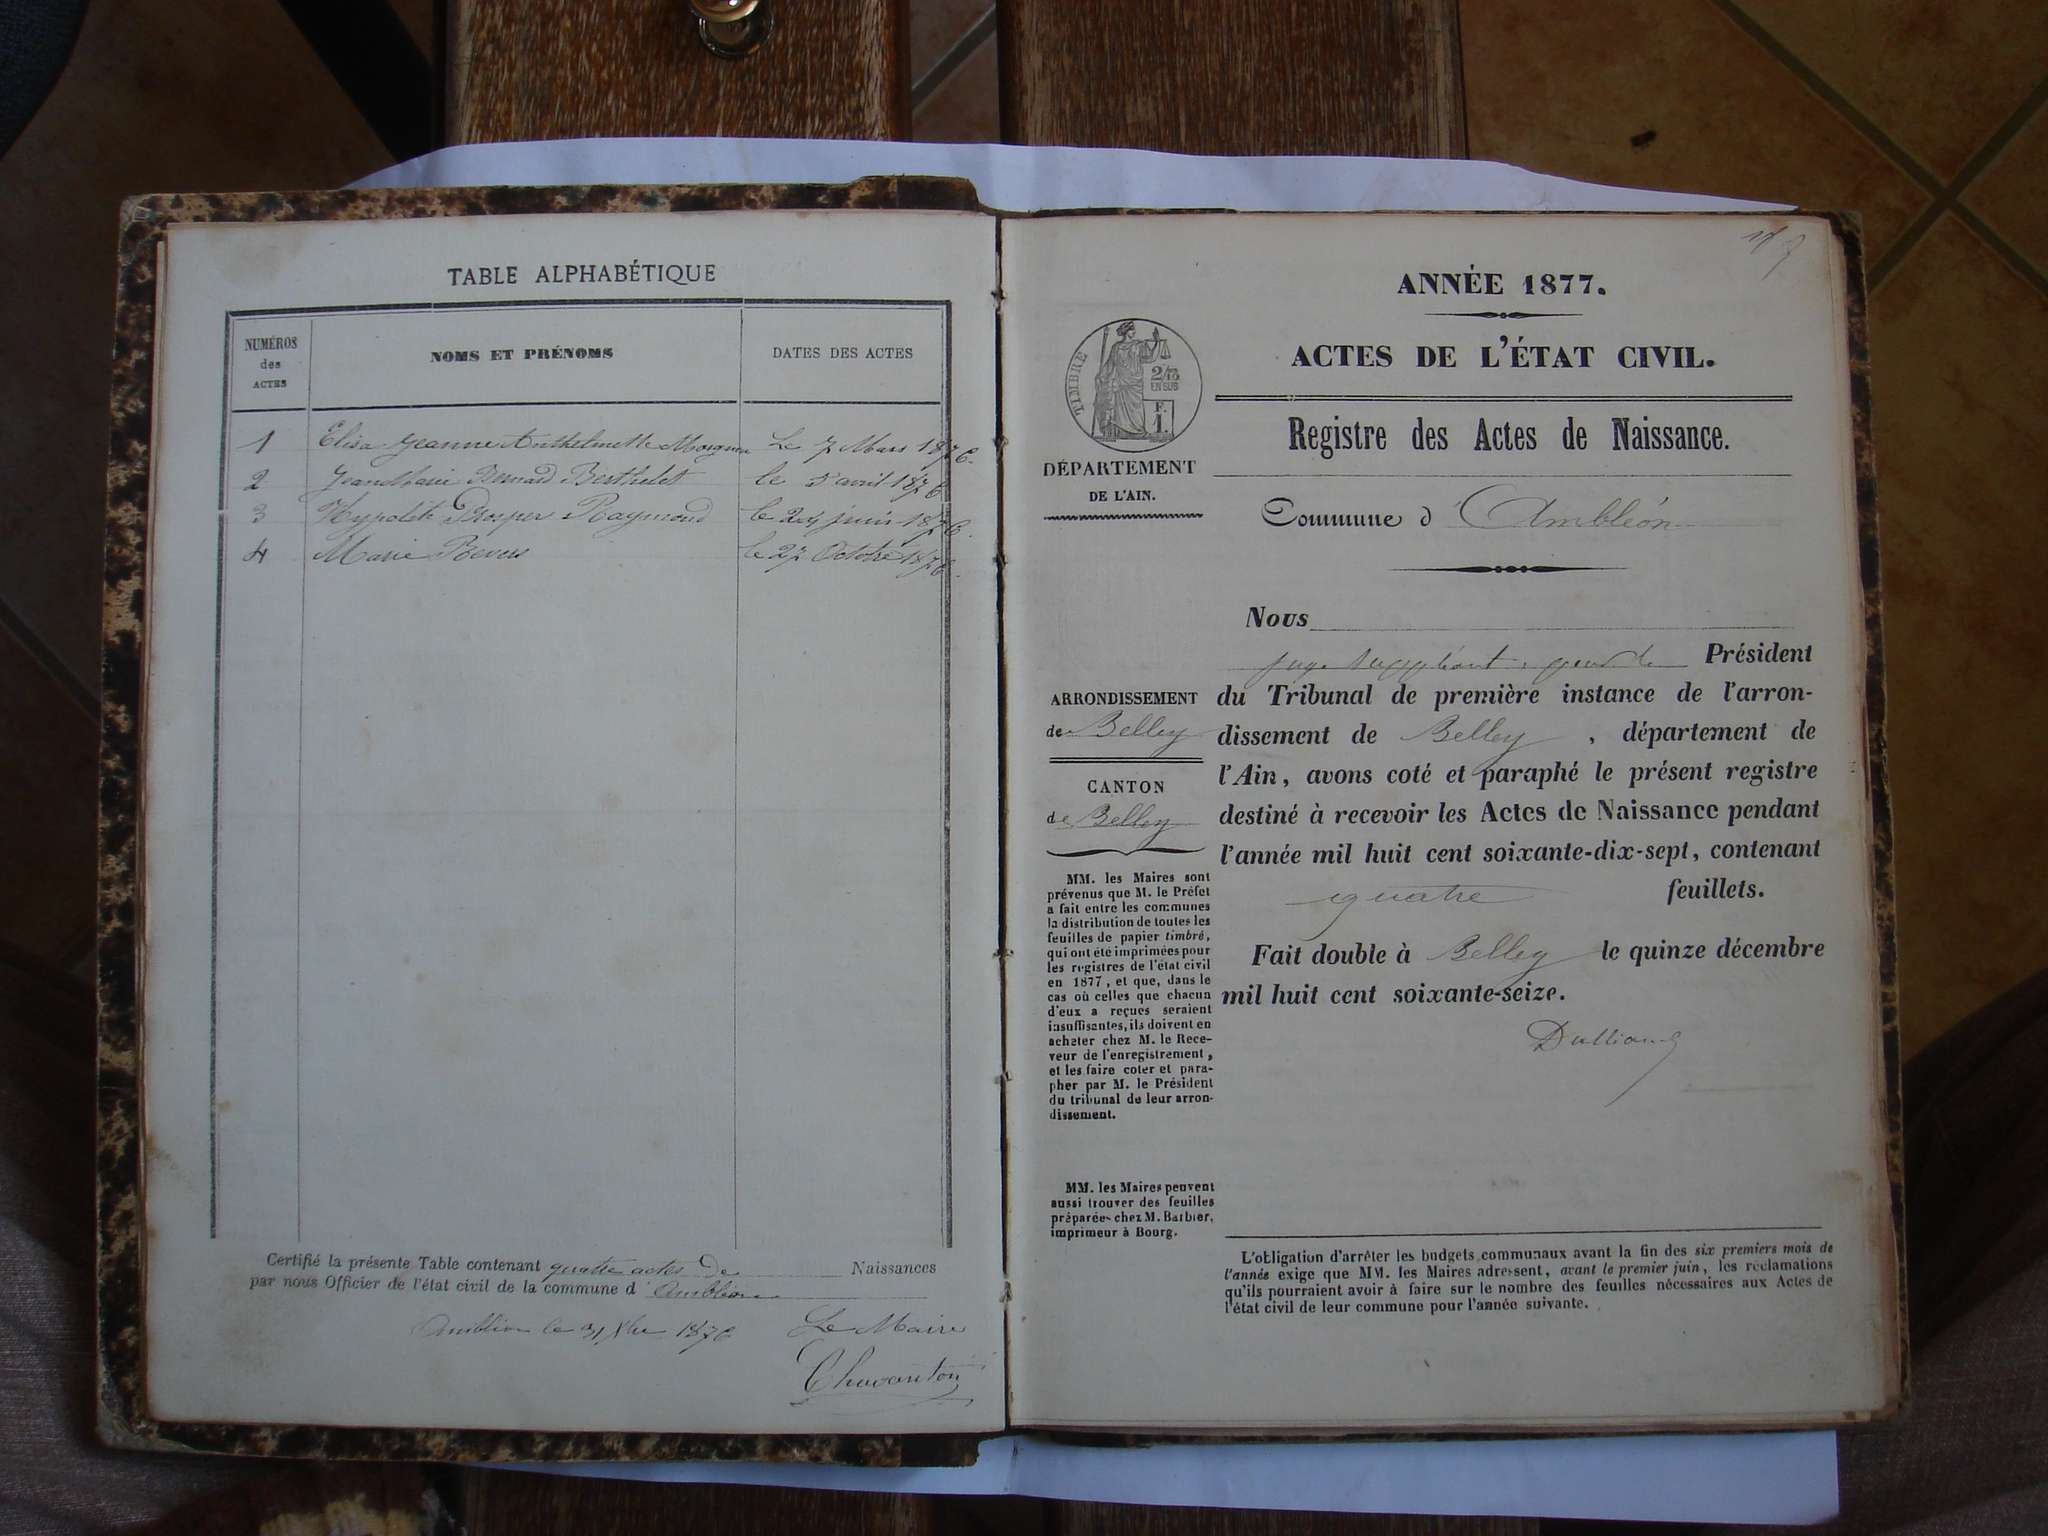 TABLE ALPHABÉTIQUE
NUMÉROS des ACTES
NOMS ET PRÉNOMS
DATES DES ACTES
1 Elisa Jeanne Anthelmette le 7 Mars 1876.
2 Jean Marie Bernard Berthelet le 5 avril 1876
3 Hypolite Prosper Raymond le 24 juin 1876.
4 Marie le 27 Octobre 1876.
Certifié la présente Table contenant quatre actes de Naissances
par nous Officier de l'état civil de la commune d'Ambléon
Ambléon le 31 Xbre 1876 Le Maire
Chavanton
ANNÉE 1877.
ACTES DE L'ÉTAT CIVIL.
Registre des Actes de Naissance.
TIMBRE
2/10
EN SUS
F.
1.
DÉPARTEMENT
DE L'AIN.
Commune d'Ambléon
ARRONDISSEMENT
de Belley
CANTON
de Belley
MM. les Maires sont
prévenus que M. le Préfet
a fait entre les communes
la distribution de toutes les
feuilles de papier timbré,
qui ont été imprimées pour
les registres de l'état civil
en 1877, et que, dans le
cas où celles que chacun
d'eux a reçues seraient
insuffisantes, ils doivent en
acheter chez M. le Rece-
veur de l'enregistrement,
et les faire coter et para-
pher par M. le Président
du tribunal de leur arron-
dissement.
MM. les Maires peuvent
aussi trouver des feuilles
préparées chez M. Barbier,
imprimeur à Bourg.
Nous
juge suppléant, pour le Président
du Tribunal de première instance de l'arron-
dissement de Belley, département de
l'Ain, avons coté et paraphé le présent registre
destiné à recevoir les Actes de Naissance pendant
l'année mil huit cent soixante-dix-sept, contenant
quatre feuillets.
Fait double à Belley le quinze décembre
mil huit cent soixante-seize.
L'obligation d'arrêter les budgets communaux avant la fin des six premiers mois de
l'année exige que MM. les Maires adressent, avant le premier juin, les réclamations
qu'ils pourraient avoir à faire sur le nombre des feuilles nécessaires aux Actes de
l'état civil de leur commune pour l'année suivante.